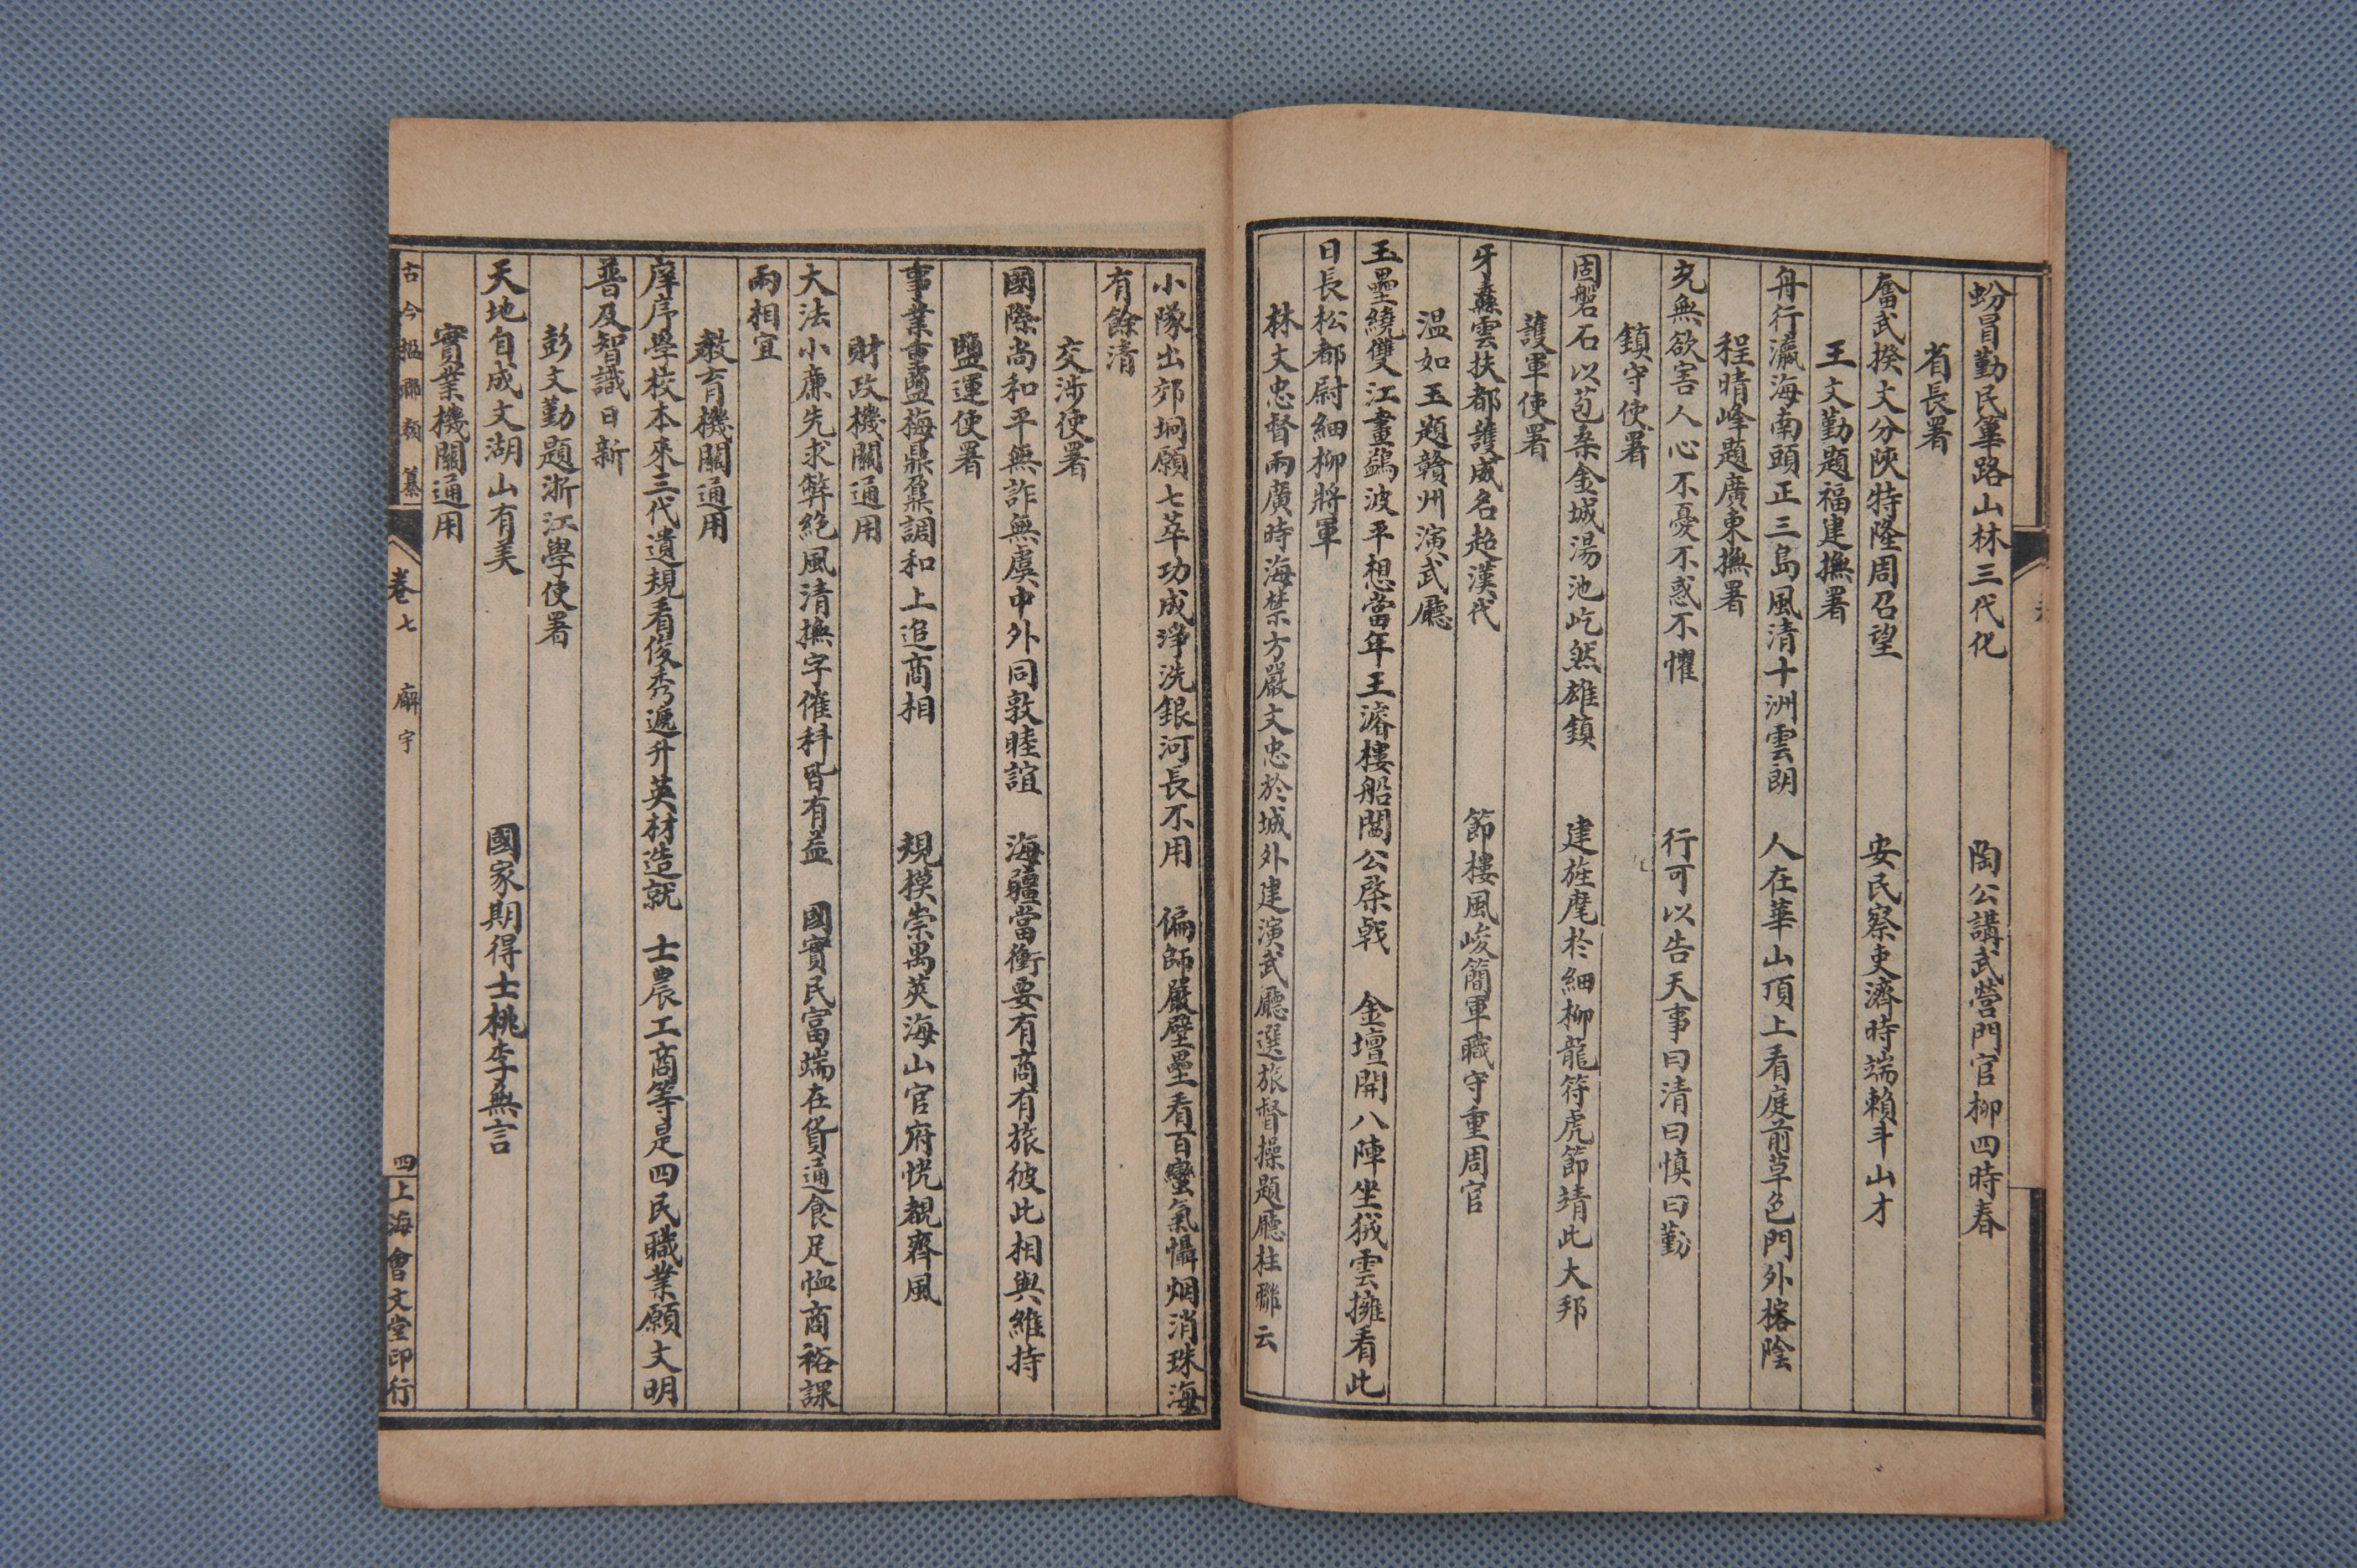 蚡冒勤民篳路山林三代化　陶公講武營門官柳四時春
省長署
奮武揆文分陝特隆周召望　安民察吏濟時端賴斗山才
王文勤題福建撫署
舟行瀛海南頭正三島風清十洲雲朗　人在華山頂上看庭前草色門外榕陰
程晴峰題廣東撫署
充無欲害人心不憂不惑不懼　行可以告天事曰清曰慎曰勤
鎮守使署
固磐石以苞桑金城湯池屹然雄鎮　建旌麾於細柳龍符虎節靖此大邦
護軍使署
牙纛雲扶都護威名超漢代　節樓風峻簡軍職守重周官
溫如玉題贛州演武廳
玉壘繞雙江畫鷁波平想當年王濬樓船閩公棨戟　金壇開八陣坐狨雲擁看此
日長松都尉細柳將軍
林文忠督兩廣時海禁方嚴文忠於城外建演武廳選旅督操題廳柱聯云
小隊出郊坰願七萃功成淨洗銀河長不用　偏師嚴壁壘看百蠻氣懾烟消珠海
有餘清
交涉使署
國際尚和平無詐無虞中外同敦睦誼　海疆當衝要有商有旅彼此相與維持
鹽運使署
事業重鹽梅鼎鼐調和上追商相　規模崇禺筴海山官府恍覩齊風
財政機關通用
大法小廉先求弊絕風清撫字催科皆有益　國實民富端在貨通食足恤商裕課
兩相宜
教育機關通用
庠序學校本來三代遺規看俊秀遞升英材造就　士農工商等是四民職業願文明
普及智識日新
彭文勤題浙江學使署
天地自成文湖山有美　國家期得士桃李無言
實業機關通用
古今楹聯類纂　卷七　廨宇　四　上海會文堂印行